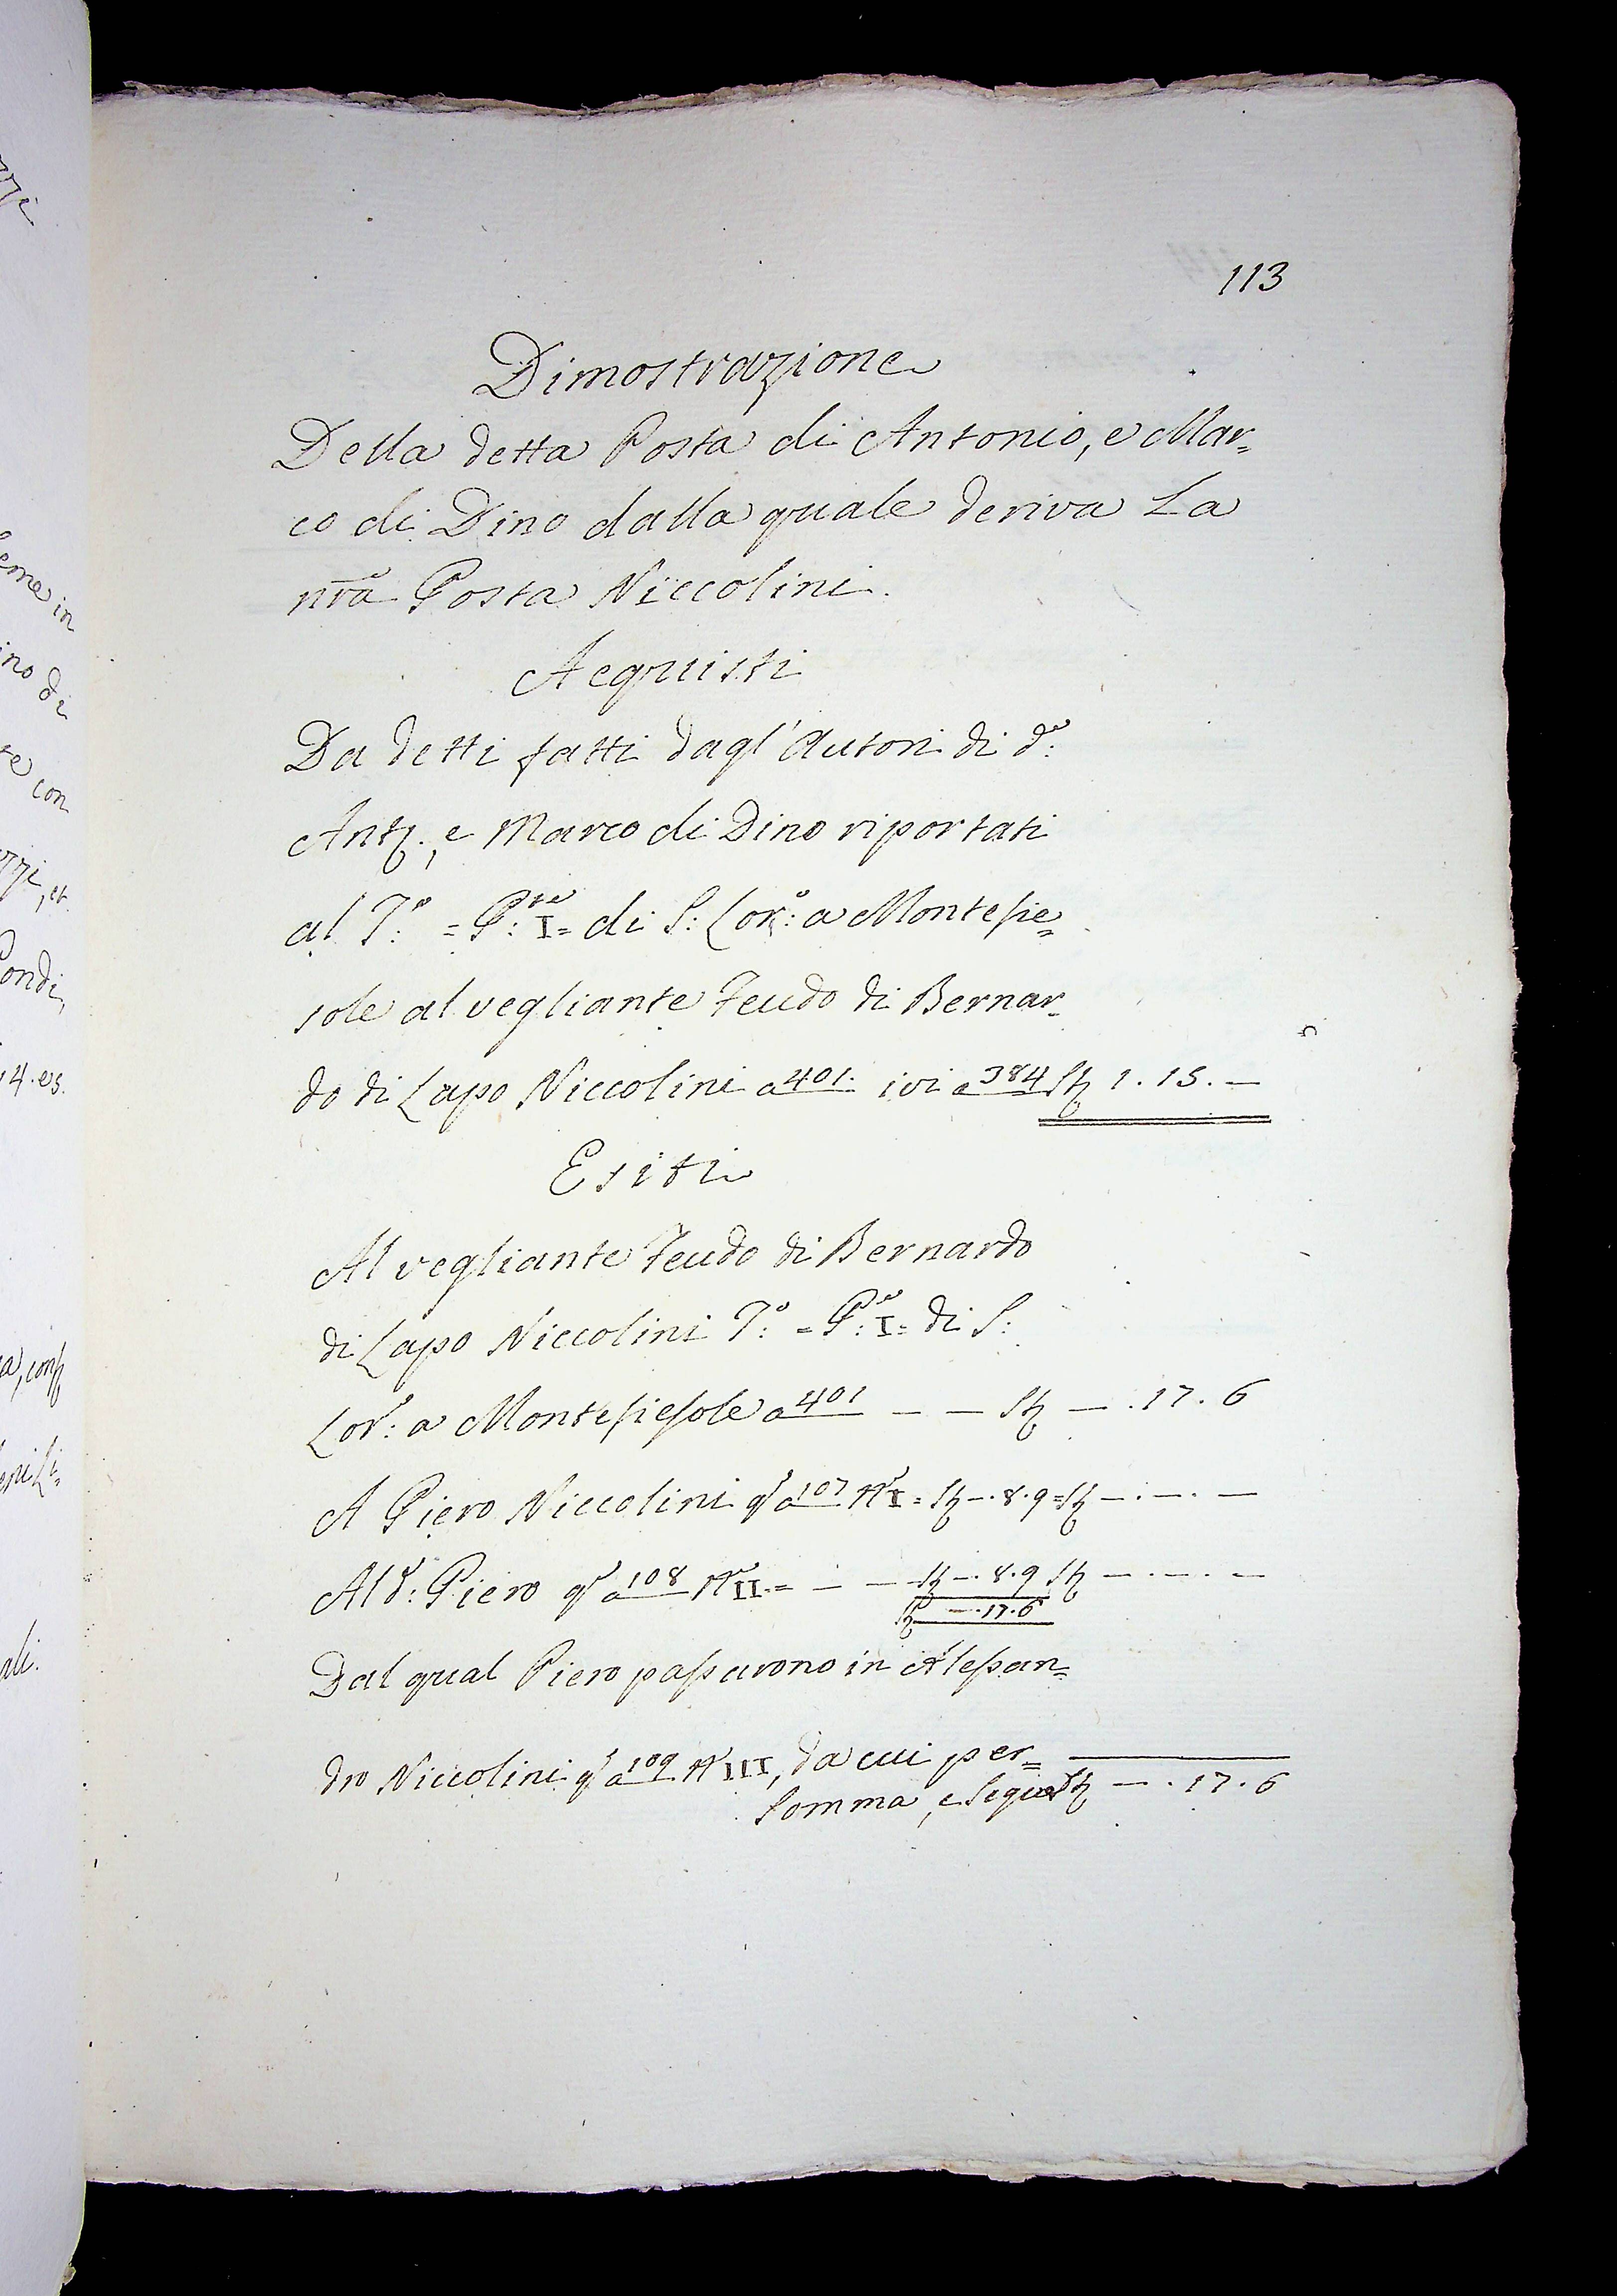 113
Dimostrazione
Della detta Posta di Antonio, e Mar=
co di Dino dalla quale deriva La
nrã Posta Niccolini.
Acquisti
Da detti fatti dagl'Autori di d:
Ant., e Marco di Dino riportati
al T:º = P:te I= di S: Lor:º a Montefie=
sole al vegliante Feudo di Bernar=
do di Lapo Niccolini a 401. ivi a 384 1. 15. —
Esiti
Al vegliante Feudo di Bernardo
di Lapo Niccolini T:º = P:te I= di S:
Lor:º a Montefiesole a 401 — — — . 17. 6
A Piero Niccolini a 107 I = — . 8. 9 = — . — . —
Al d: Piero a 108 II = — — — . 8. 9 — . — . —
— . 17. 6
Dal qual Piero passarono in Alessan=
dro Niccolini a 109 III, da cui per=
Somma, e Segue — . 17. 6